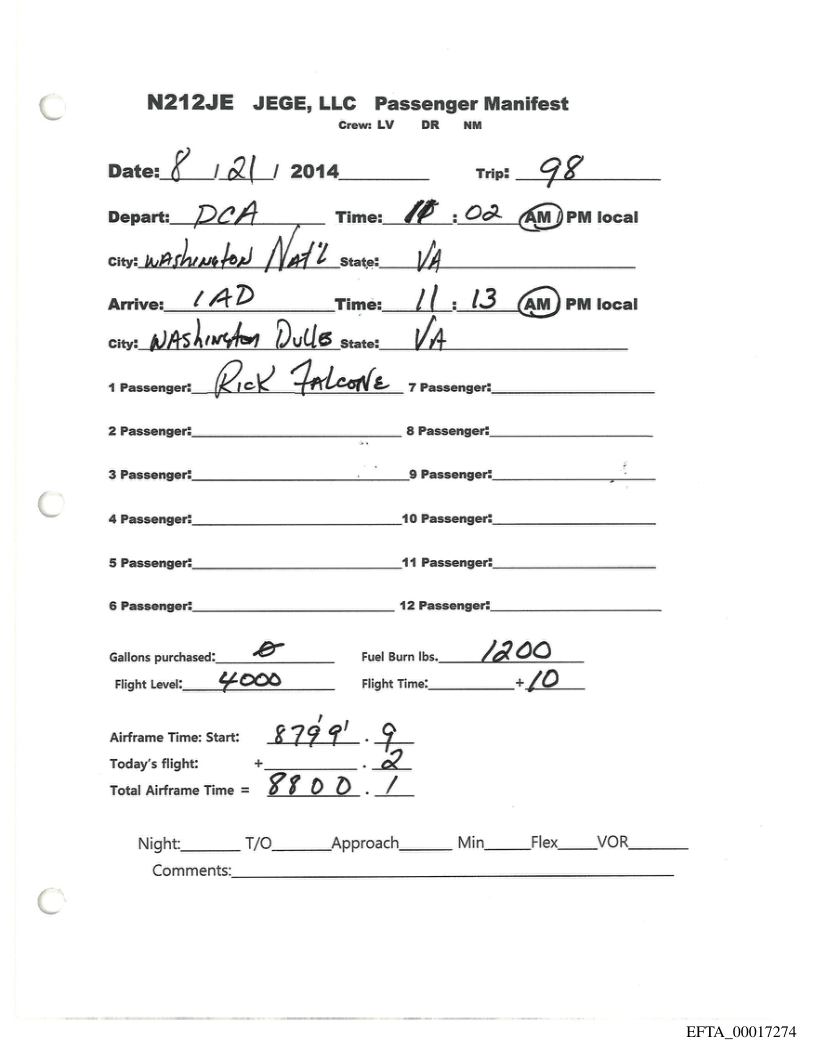 N212JE JEGE, LLC Passenger Manifest
Crew: LV DR NM
Date: 8 / 21 / 2014 Trip: 98
Depart: DCA Time: 11 : 02 AM / PM local
City: WAShiNGTON NAT'L State: VA
Arrive: IAD Time: 11 : 13 AM PM local
City: WAShiNgton DullES State: VA
1 Passenger: Rick FALCONE 7 Passenger:
2 Passenger: 8 Passenger:
3 Passenger: 9 Passenger:
4 Passenger: 10 Passenger:
5 Passenger: 11 Passenger:
6 Passenger: 12 Passenger:
Gallons purchased: 0 Fuel Burn lbs. 1200
Flight Level: 4000 Flight Time: + 10
Airframe Time: Start: 8799 . 9
Today's flight: + . 2
Total Airframe Time = 8800 . 1
Night: T/O Approach Min Flex VOR
Comments:
EFTA_00017274